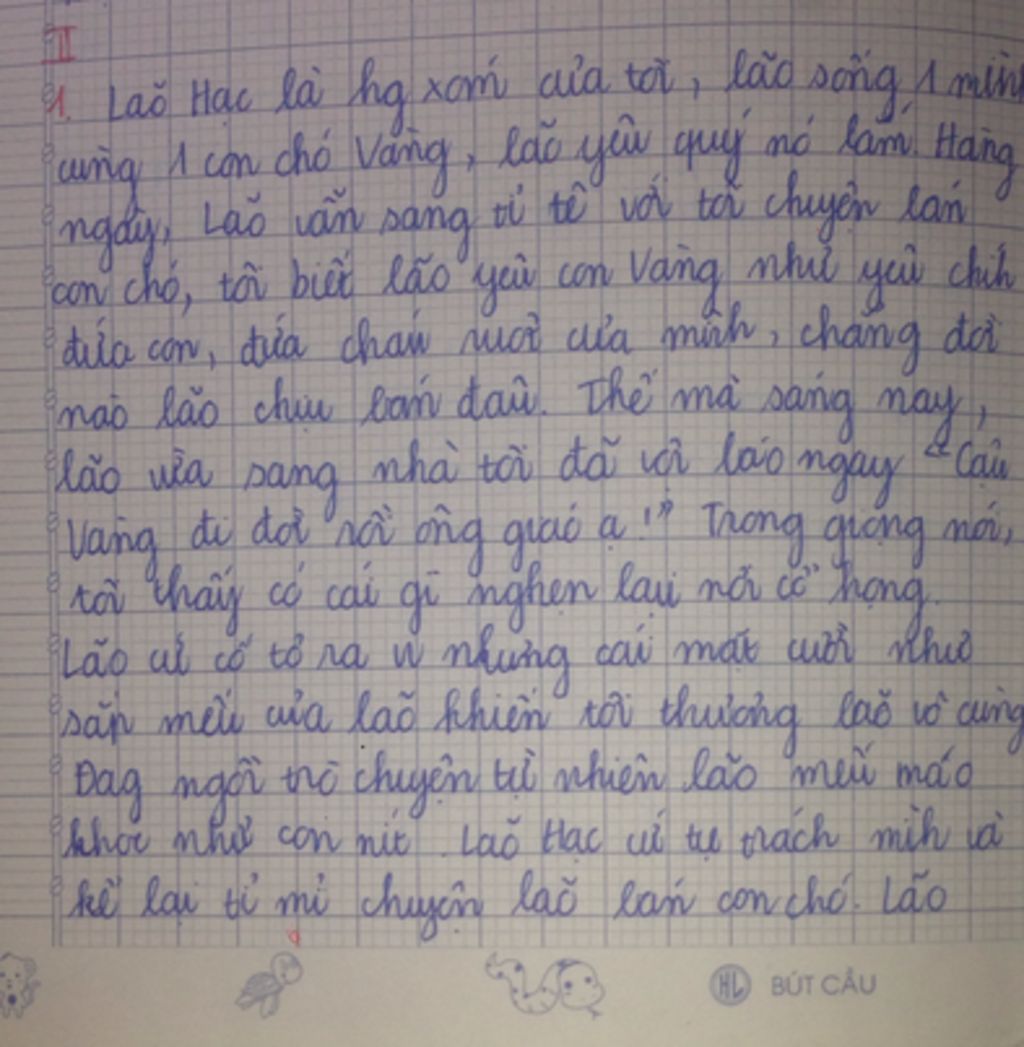 II
1. Lão Hạc là hg xóm của tôi, lão sống 1 mình
cùng 1 con chó Vàng, lão yêu quý nó lắm. Hàng
ngày, Lão vẫn sang tỉ tê với tôi chuyện bán
con chó, tôi biết lão yêu con Vàng như yêu chính
đứa con, đứa cháu ruột của mình, chẳng đời
nào lão chịu bán đâu. Thế mà sáng nay,
lão vừa sang nhà tôi đã vội báo ngay "Cậu
Vàng đi đời rồi ông giáo ạ!" Trong giọng nói,
tôi thấy có cái gì nghẹn lại nơi cổ họng.
Lão cứ cố tỏ ra vui nhưng cái mặt cười như
sắp mếu của lão khiến tôi thương lão vô cùng
Đag ngồi trò chuyện tự nhiên lão mếu máo
khóc như con nít. Lão Hạc cứ tự trách mình và
kể lại tỉ mỉ chuyện lão bán con chó. Lão
HL BÚT CẦU